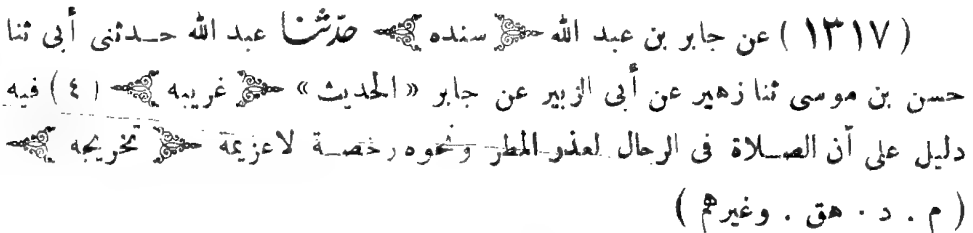 ( ١٣١٧ ) عن جابر بن عبد الله ﴿ سنده ﴾ حدثنا عبد الله حدثنى أبى ثنا
حسن بن موسى ثنا زهير عن أبى الزبير عن جابر « الحديث » ﴿ غريبه ﴾ ( ٤ ) فيه
دليل على أن الصلاة فى الرحال لعذر المطر ونحوه رخصة لاعزيمة ﴿ تخريجه ﴾
( م . د . هق . وغيرهم )